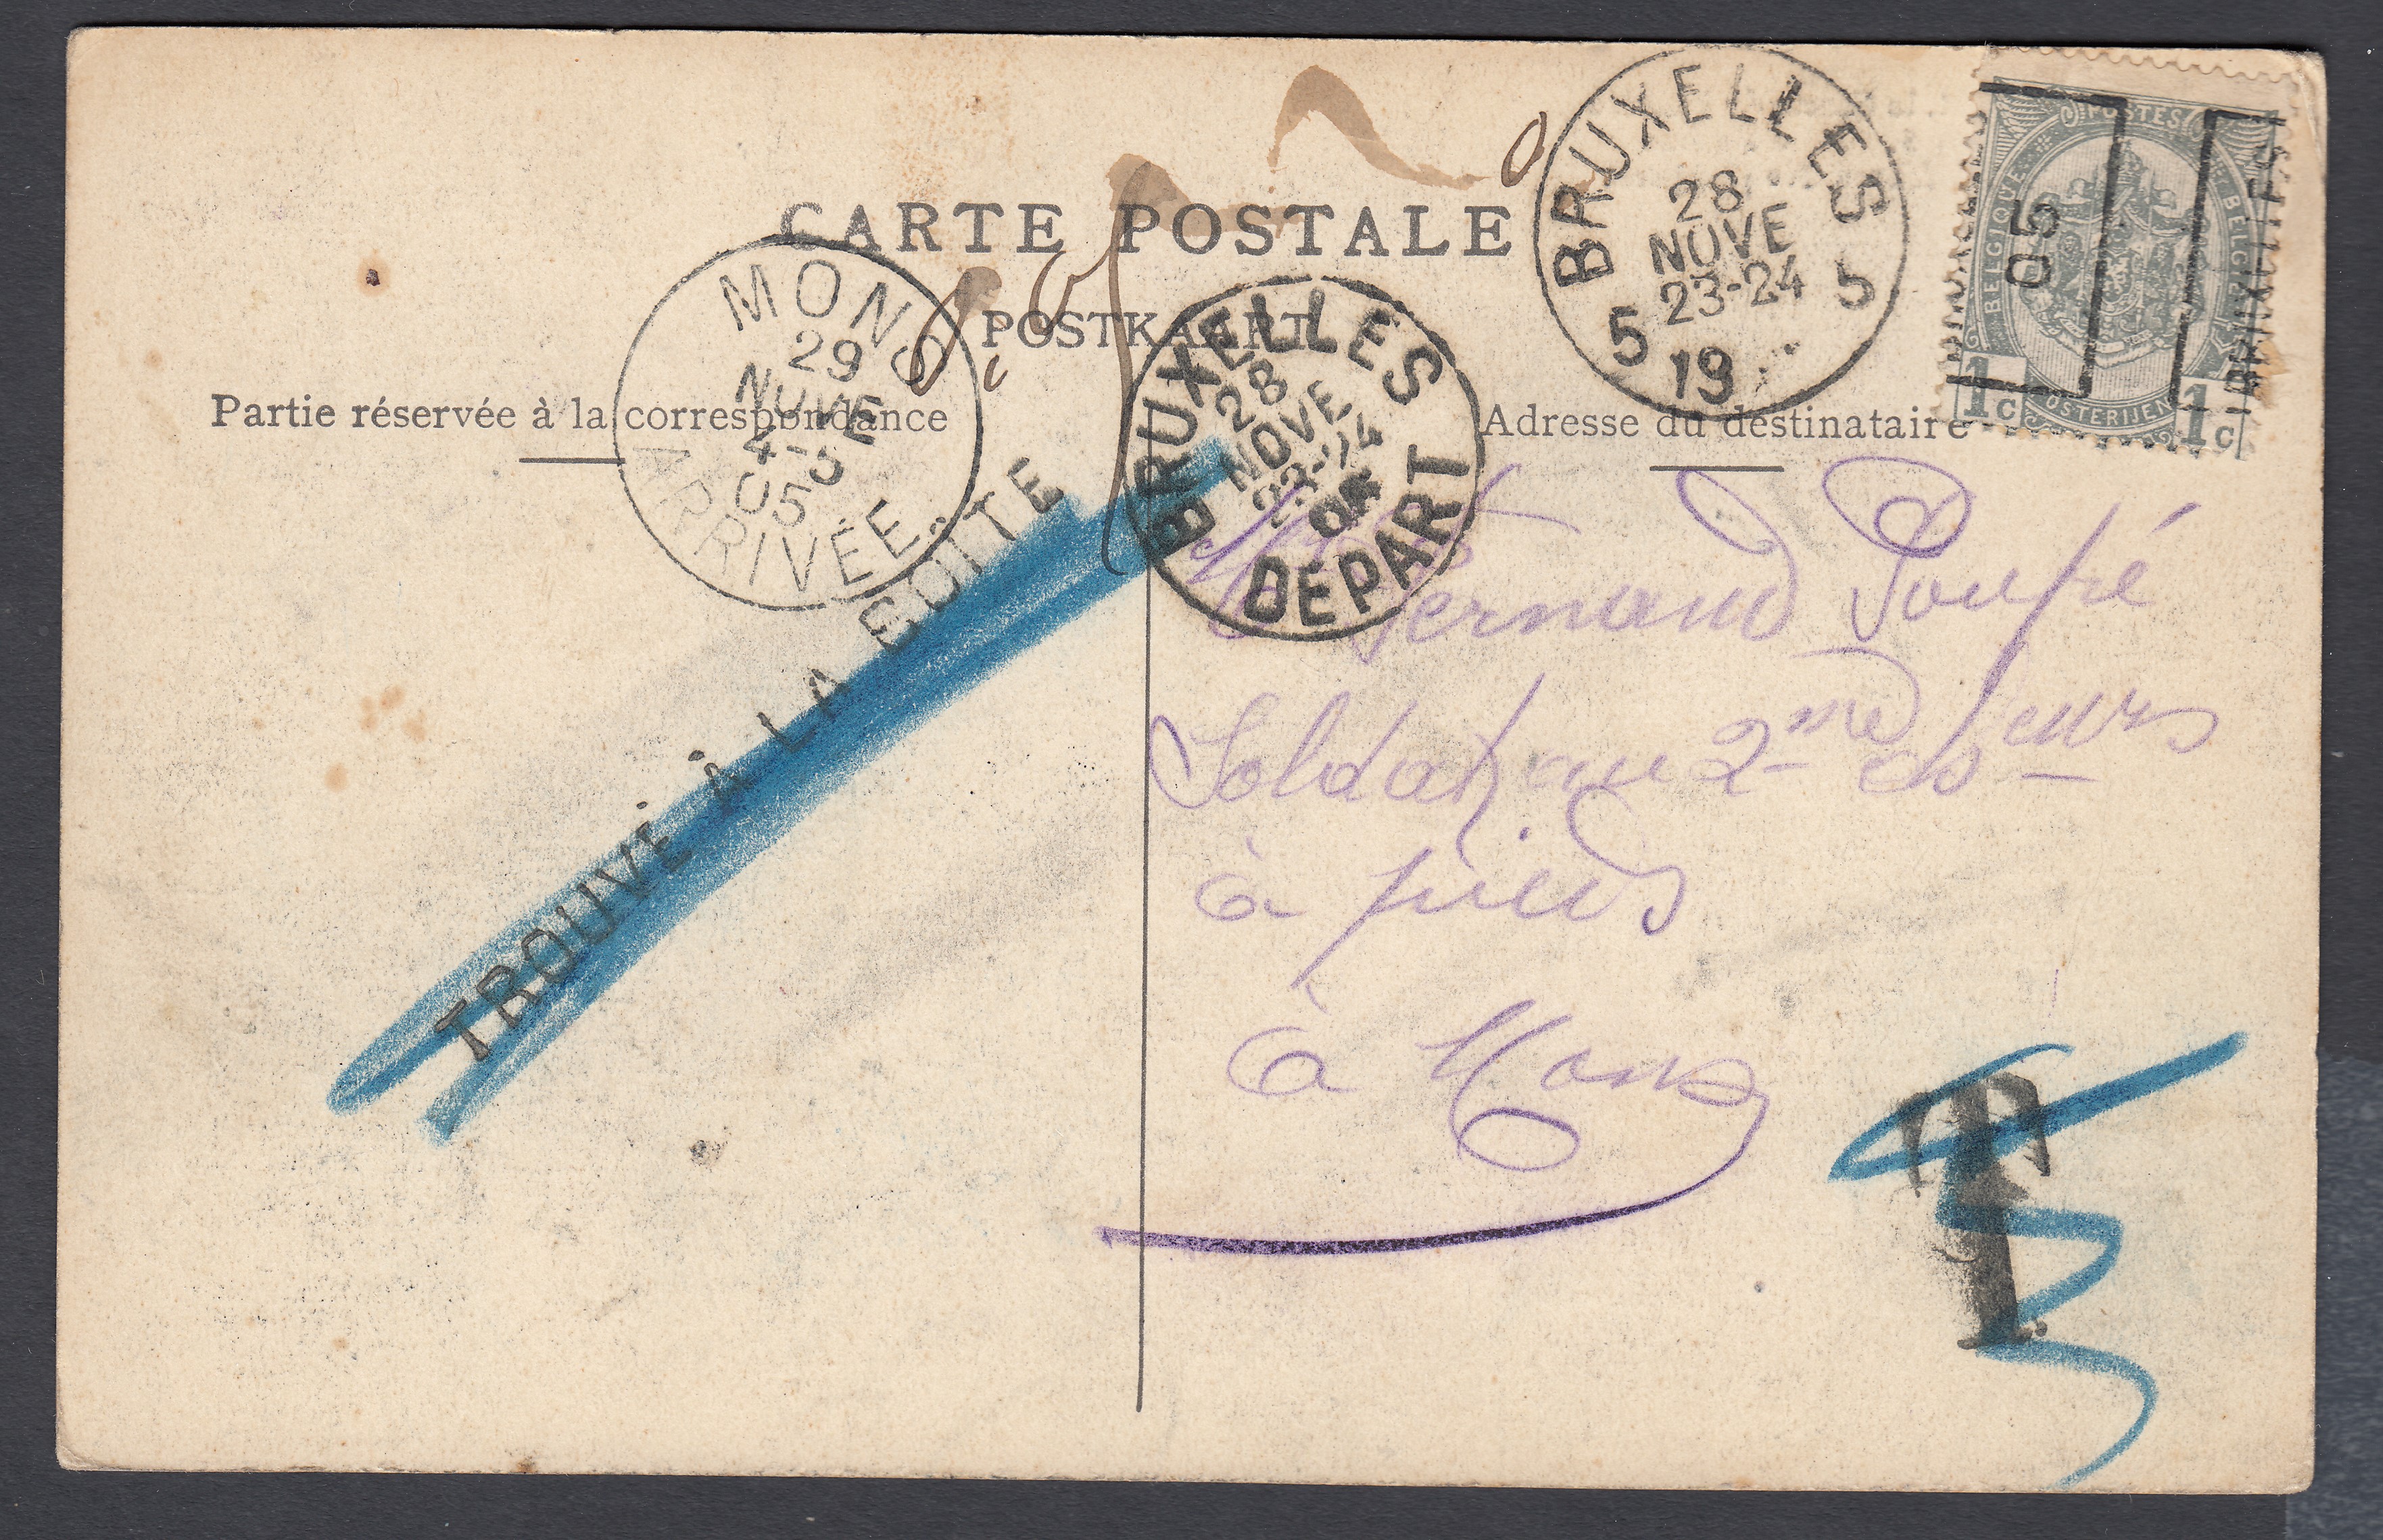 CARTE POSTALE
POSTKAART
Partie réservée à la correspondance
Adresse du destinataire
BRUXELLES
28
NOVE
23-24
5 5
19
POSTES
BELGIQUE
05
BRUXELLES
1c
POSTERIJEN
1c
MONS
29
NOVE
4-5
05
ARRIVÉE
BRUXELLES
28
NOVE
23-24
DÉPART
TROUVÉ À LA BOITE
Fernand
Soldat au 2me
à pieds
à Mons
T